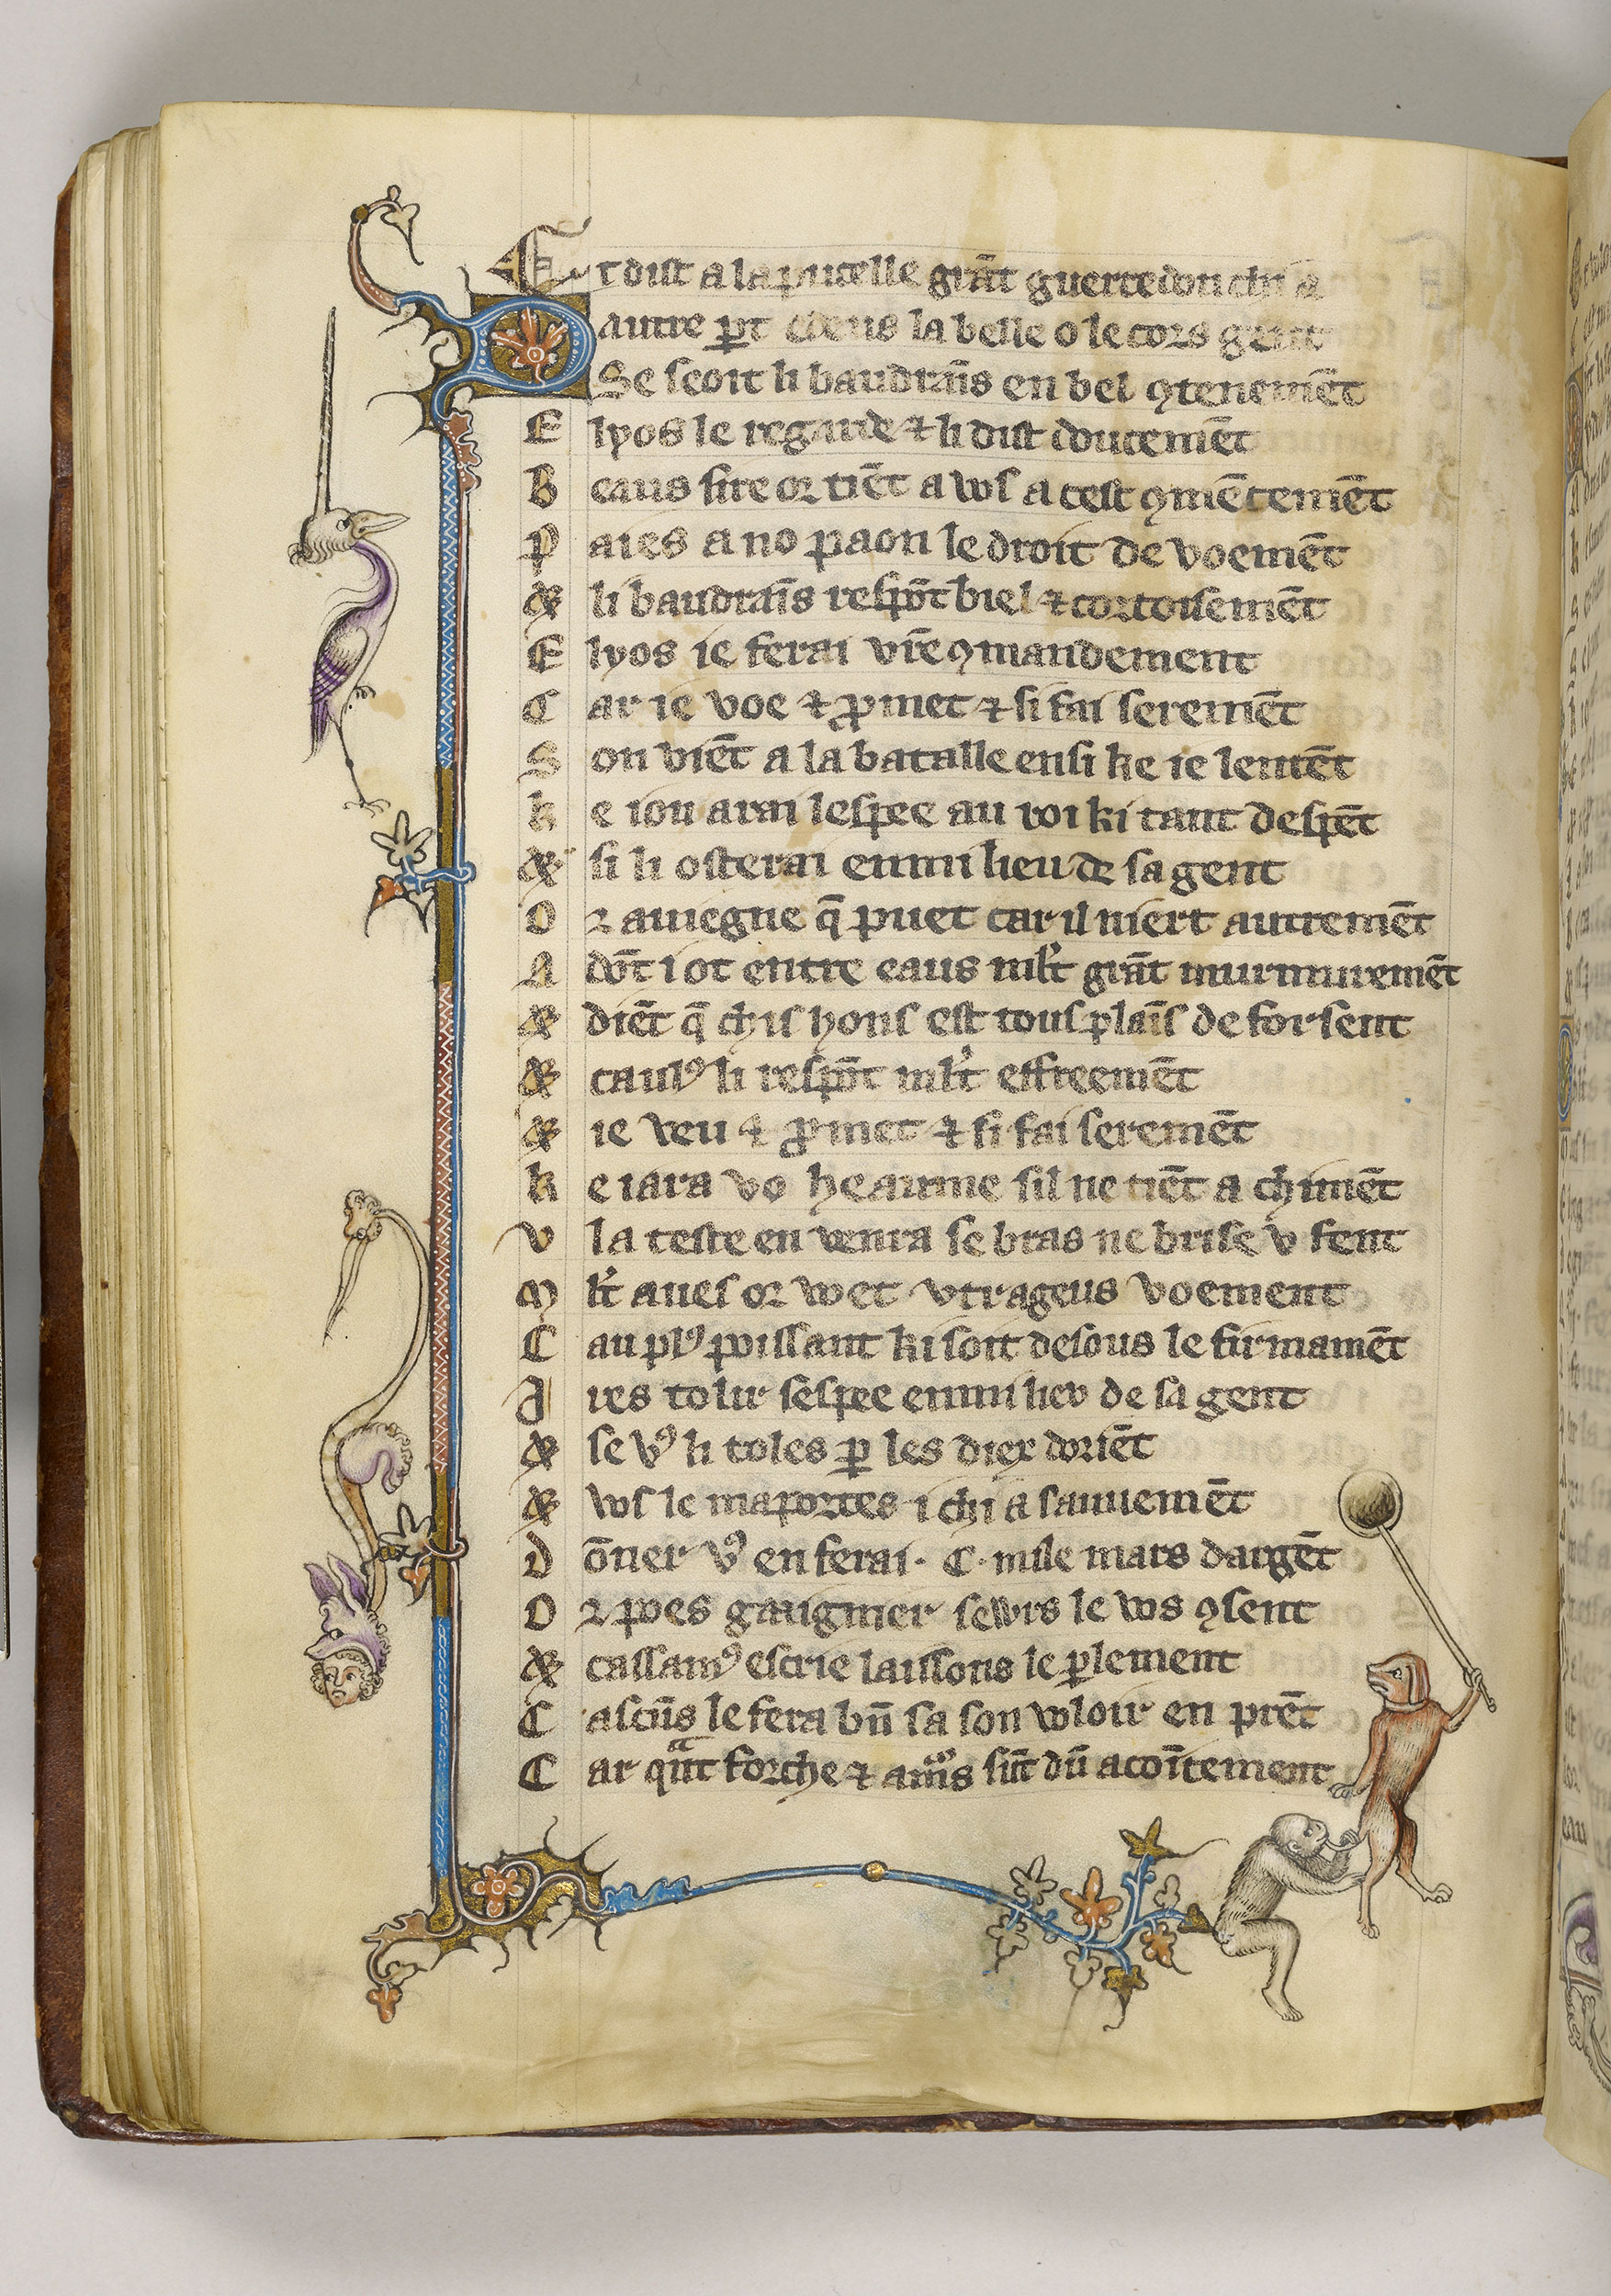 Et dist a la pucelle grāt guerredon chi a
Dautre ꝑt edeus la belle o le cors gent
Se seoit li baudraīs en bel ꝯtenemēt
Elyos le regarde ⁊ li dist doucemēt
Beaus sire or tiēt a vos a cest ꝯmēcemēt
Paies a no paon le droit de voemēt
Et li baudraīs respōt biel ⁊ cortoisemēt
Elyos ie ferai vr̄e ꝯmandement
Car ie voe ⁊ ꝓmet ⁊ si fai seremēt
Son viēt a la batalle ensi ke ie lentēt
Ke iou arai lespee au roi ki tant despēt
Et si li osterai enmi lieu de sa gent
Or auiegne q̄ puet car il niert autremēt
Adōt i ot entre eaus ml't grāt murmuremēt
Et diēt q̄ chis hons est tous plaīs de forsent
Et caulꝰ li respōt ml't effreemēt
Et ie veu ⁊ ꝓmet ⁊ si fai seremēt
Ke iara vo heaume sil ne tiēt a chimēt
V la teste en venra se bras ne brise v fent
Ml't aues or voet vtrageus voement
Cau plꝰ poissant ki soit desous le firmamēt
Ires tolir sespee enmi liev de sa gent
Et se vꝰ li toles ꝑ les diex doriēt
Et vos le maportes i chi a sauuemēt
Dōner vꝰ en ferai · C · mile mars dargēt
Or poes gaignier se wrs le vos ꝯsent
Et cassamꝰ escrie laissons le ꝑlement
Cascūs le fera bn̄ sa son voloir en prēt
Car qᵃnt forche ⁊ amͦs sūt dū acoītement